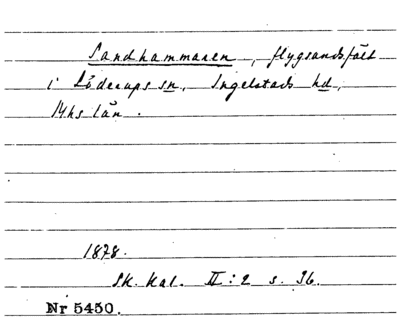 Sandhammaren, flygsandsfält
i Löderups sn, Ingelstads hd,
Mhs län.
1878.
Sk. Kal. II:2 s. 36.
Nr 5450.